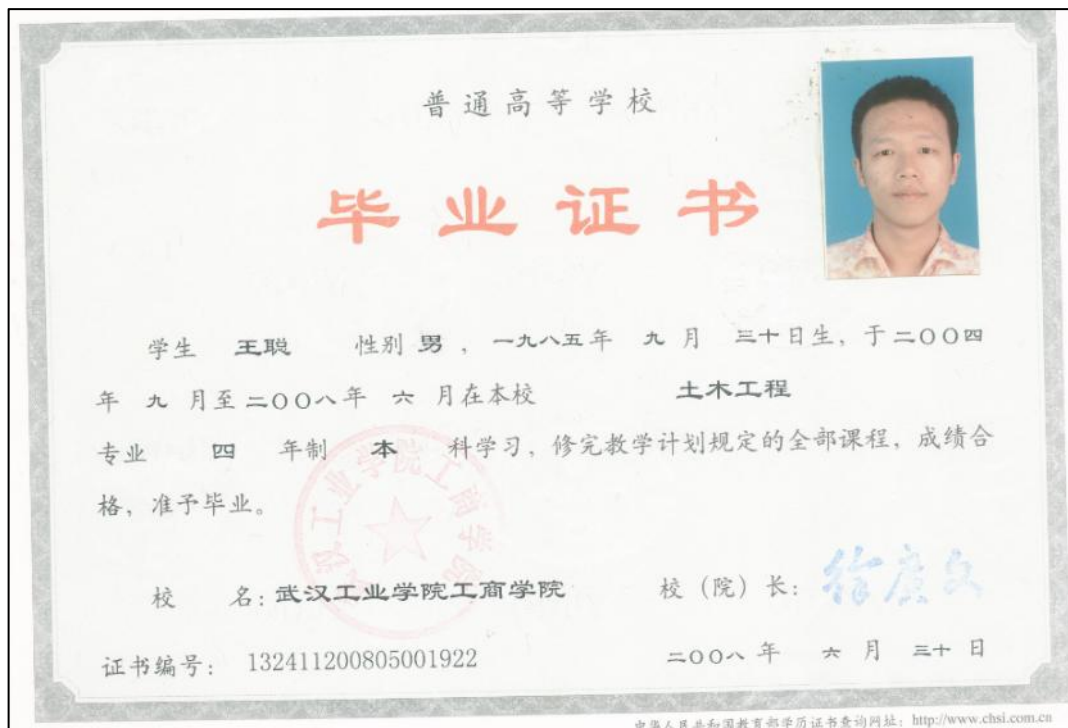 普通高等学校
毕业证书
学生 王聪 性别 男，一九八五年 九 月 三十日生，于二〇〇四
年 九 月至二〇〇八年 六 月在本校 土木工程
专业 四 年制 本 科学习，修完教学计划规定的全部课程，成绩合
格，准予毕业。
武汉工业学院工商学院
校 名：武汉工业学院工商学院 校（院）长：徐广文
证书编号： 132411200805001922 二〇〇八 年 六 月 三十 日
中华人民共和国教育部学历证书查询网址：http://www.chsi.com.cn